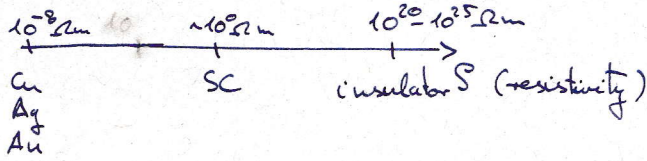 10⁻⁸ Ωm 10 ~10⁰ Ωm 10²⁰–10²⁵ Ωm
Cu SC insulator ρ (resistivity)
Ag
Au